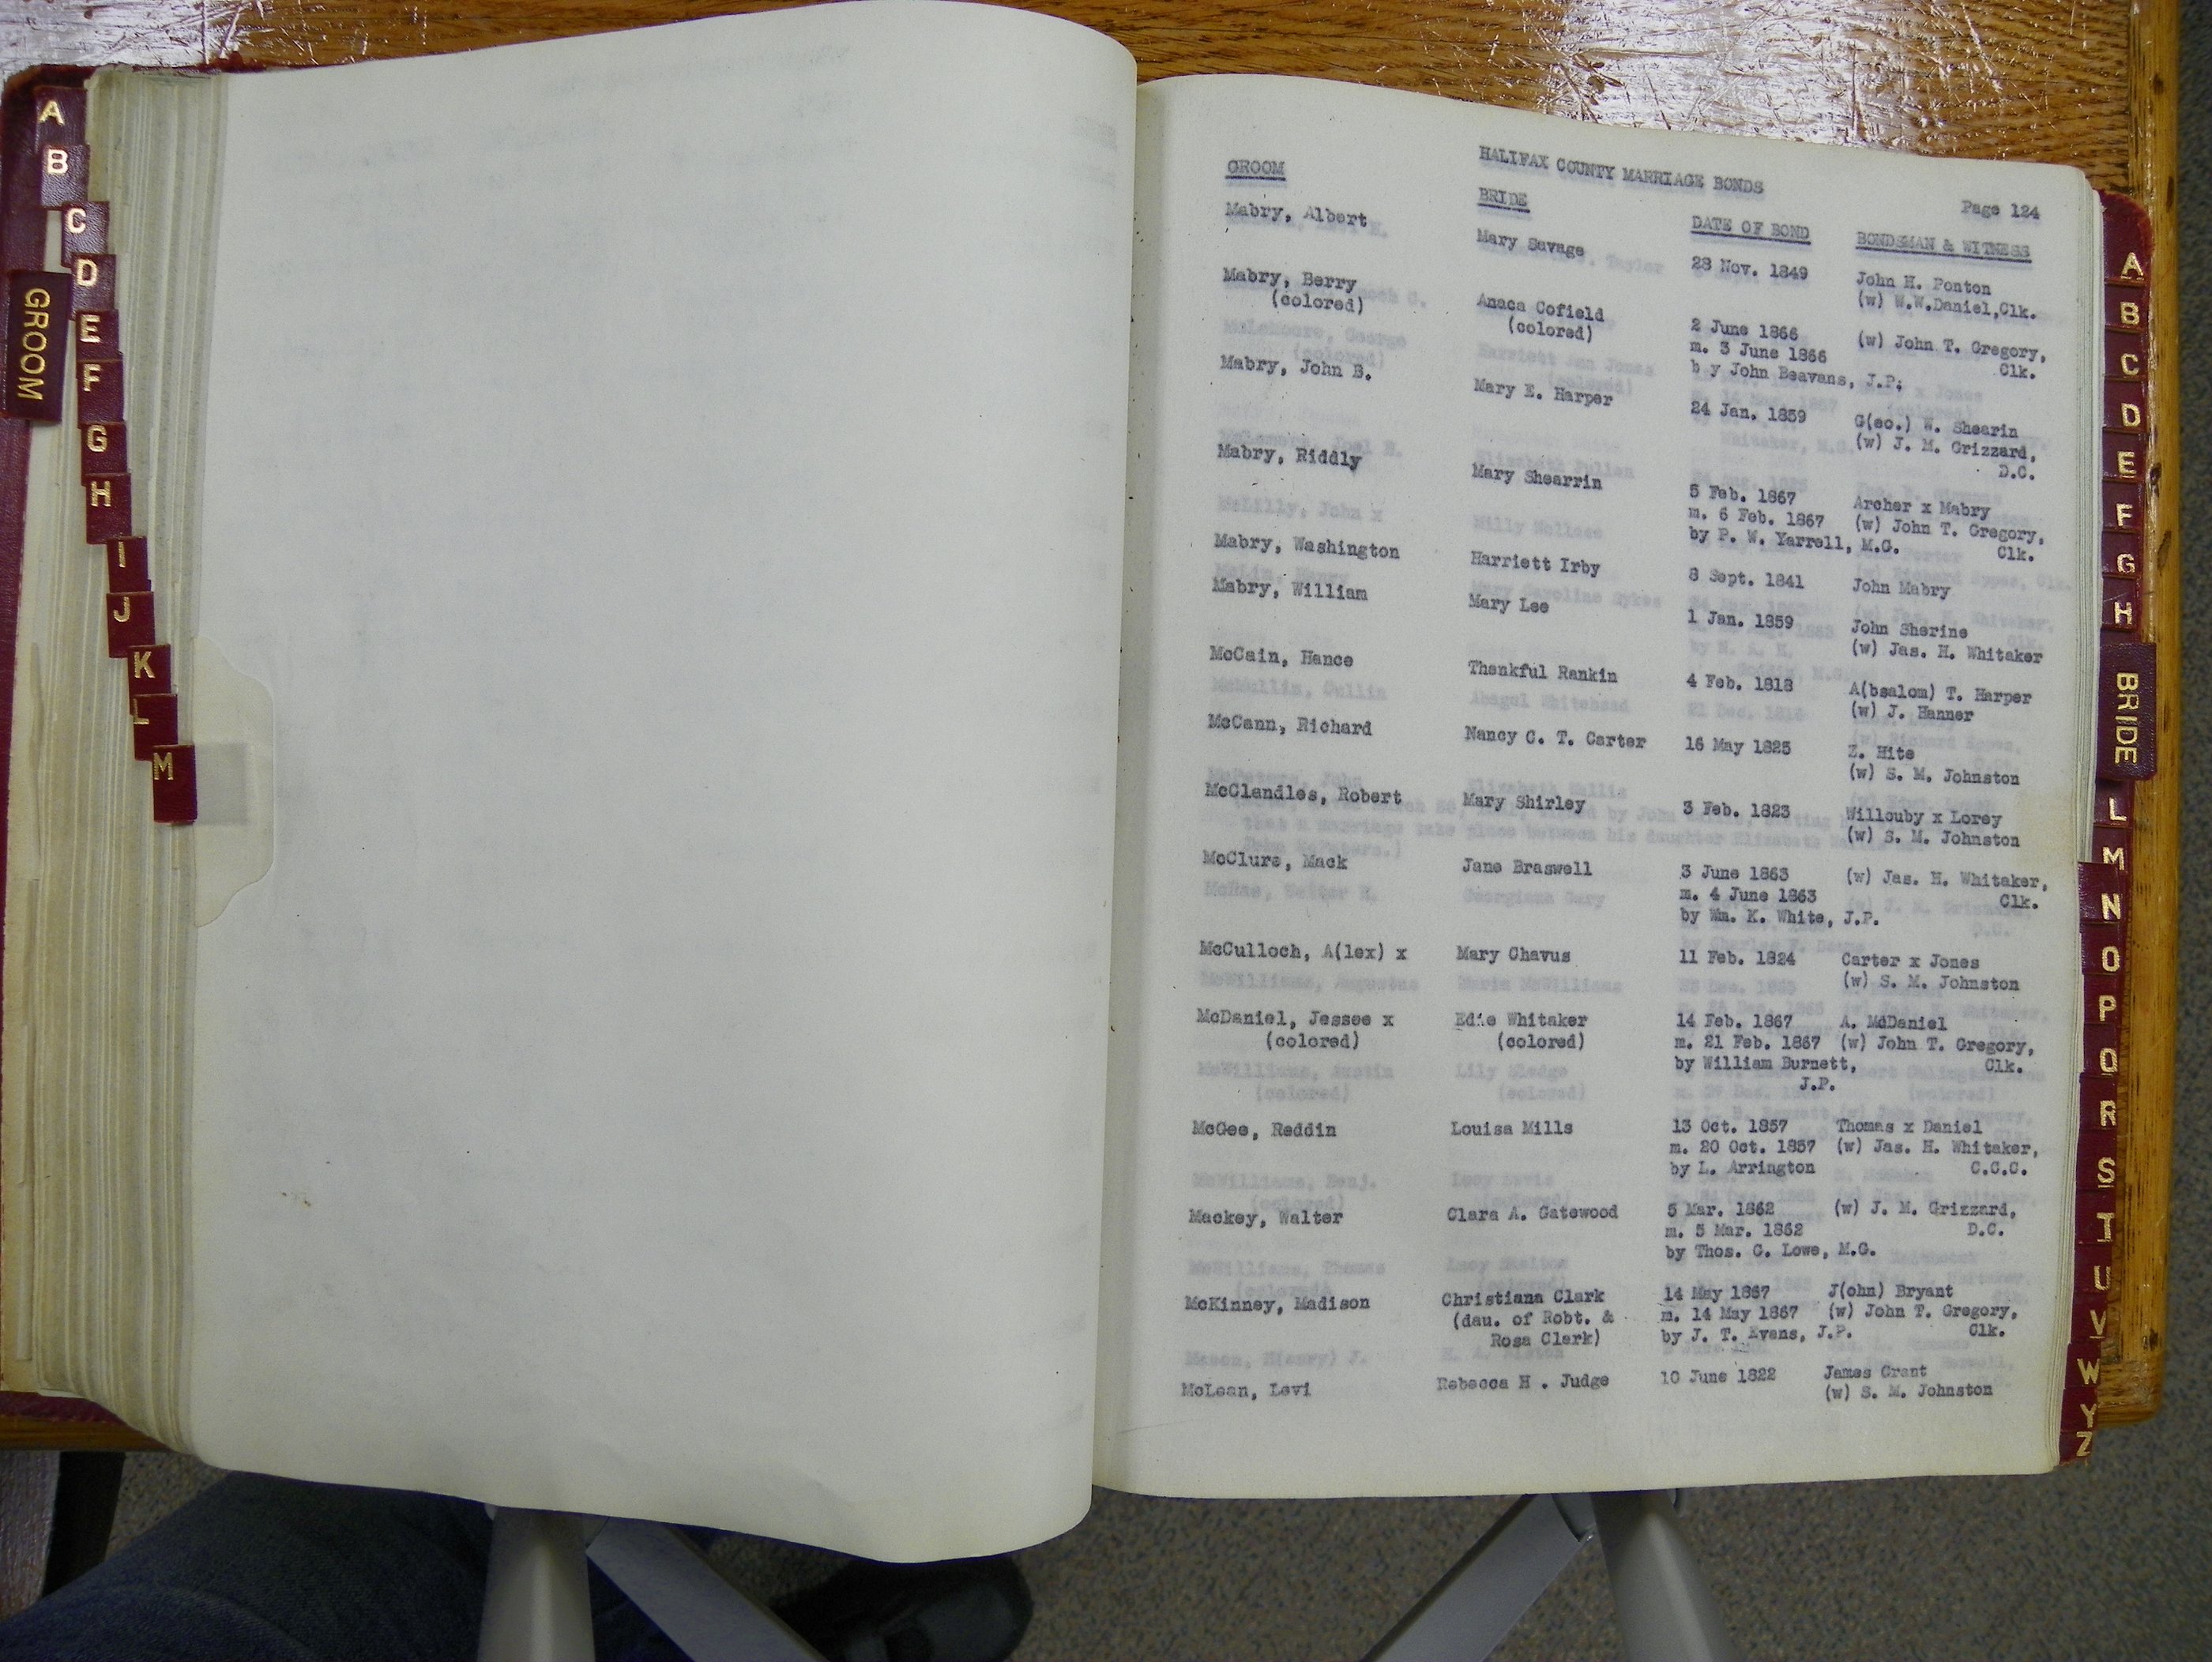 A
B
C
D
GROOM
E
F
G
H
I
J
K
L
M
HALIFAX COUNTY MARRIAGE BONDS
Page 124
GROOM BRIDE DATE OF BOND BONDSMAN & WITNESS
Mabry, Albert Mary Savage 28 Nov. 1849 John H. Ponton
(w) W.W.Daniel,Clk.
Mabry, Berry Anaca Cofield 2 June 1866 (w) John T. Gregory,
(colored) (colored) m. 3 June 1866 Clk.
b y John Beavans, J.P.
Mabry, John B. Mary E. Harper 24 Jan. 1859 G(eo.) W. Shearin
(w) J. M. Grizzard,
D.C.
Mabry, Riddly Mary Shearrin 5 Feb. 1867 Archer x Mabry
m. 6 Feb. 1867 (w) John T. Gregory,
by P. W. Yarrell, M.G. Clk.
Mabry, Washington Harriett Irby 8 Sept. 1841 John Mabry
Mabry, William Mary Lee 1 Jan. 1859 John Sherine
(w) Jas. H. Whitaker
McCain, Hance Thankful Rankin 4 Feb. 1818 A(bsalom) T. Harper
(w) J. Hanner
McCann, Richard Nancy C. T. Carter 16 May 1825 Z. Hite
(w) S. M. Johnston
McClandles, Robert Mary Shirley 3 Feb. 1823 Willouby x Lorey
(w) S. M. Johnston
McClure, Mack Jane Braswell 3 June 1863 (w) Jas. H. Whitaker,
m. 4 June 1863 Clk.
by Wm. K. White, J.P.
McCulloch, A(lex) x Mary Chavus 11 Feb. 1824 Carter x Jones
(w) S. M. Johnston
McDaniel, Jessee x Edie Whitaker 14 Feb. 1867 A. McDaniel
(colored) (colored) m. 21 Feb. 1867 (w) John T. Gregory,
by William Burnett, Clk.
J.P.
McGee, Reddin Louisa Mills 13 Oct. 1857 Thomas x Daniel
m. 20 Oct. 1857 (w) Jas. H. Whitaker,
by L. Arrington C.C.C.
Mackey, Walter Clara A. Gatewood 5 Mar. 1862 (w) J. M. Grizzard,
m. 5 Mar. 1862 D.C.
by Thos. G. Lowe, M.G.
McKinney, Madison Christiana Clark 14 May 1867 J(ohn) Bryant
(dau. of Robt. & m. 14 May 1867 (w) John T. Gregory,
Rosa Clark) by J. T. Evans, J.P. Clk.
McLean, Levi Rebecca H . Judge 10 June 1822 James Grant
(w) S. M. Johnston
A
B
C
D
E
F
G
H
BRIDE
L
M
N
O
P
Q
R
S
T
U
V
W
Y
Z